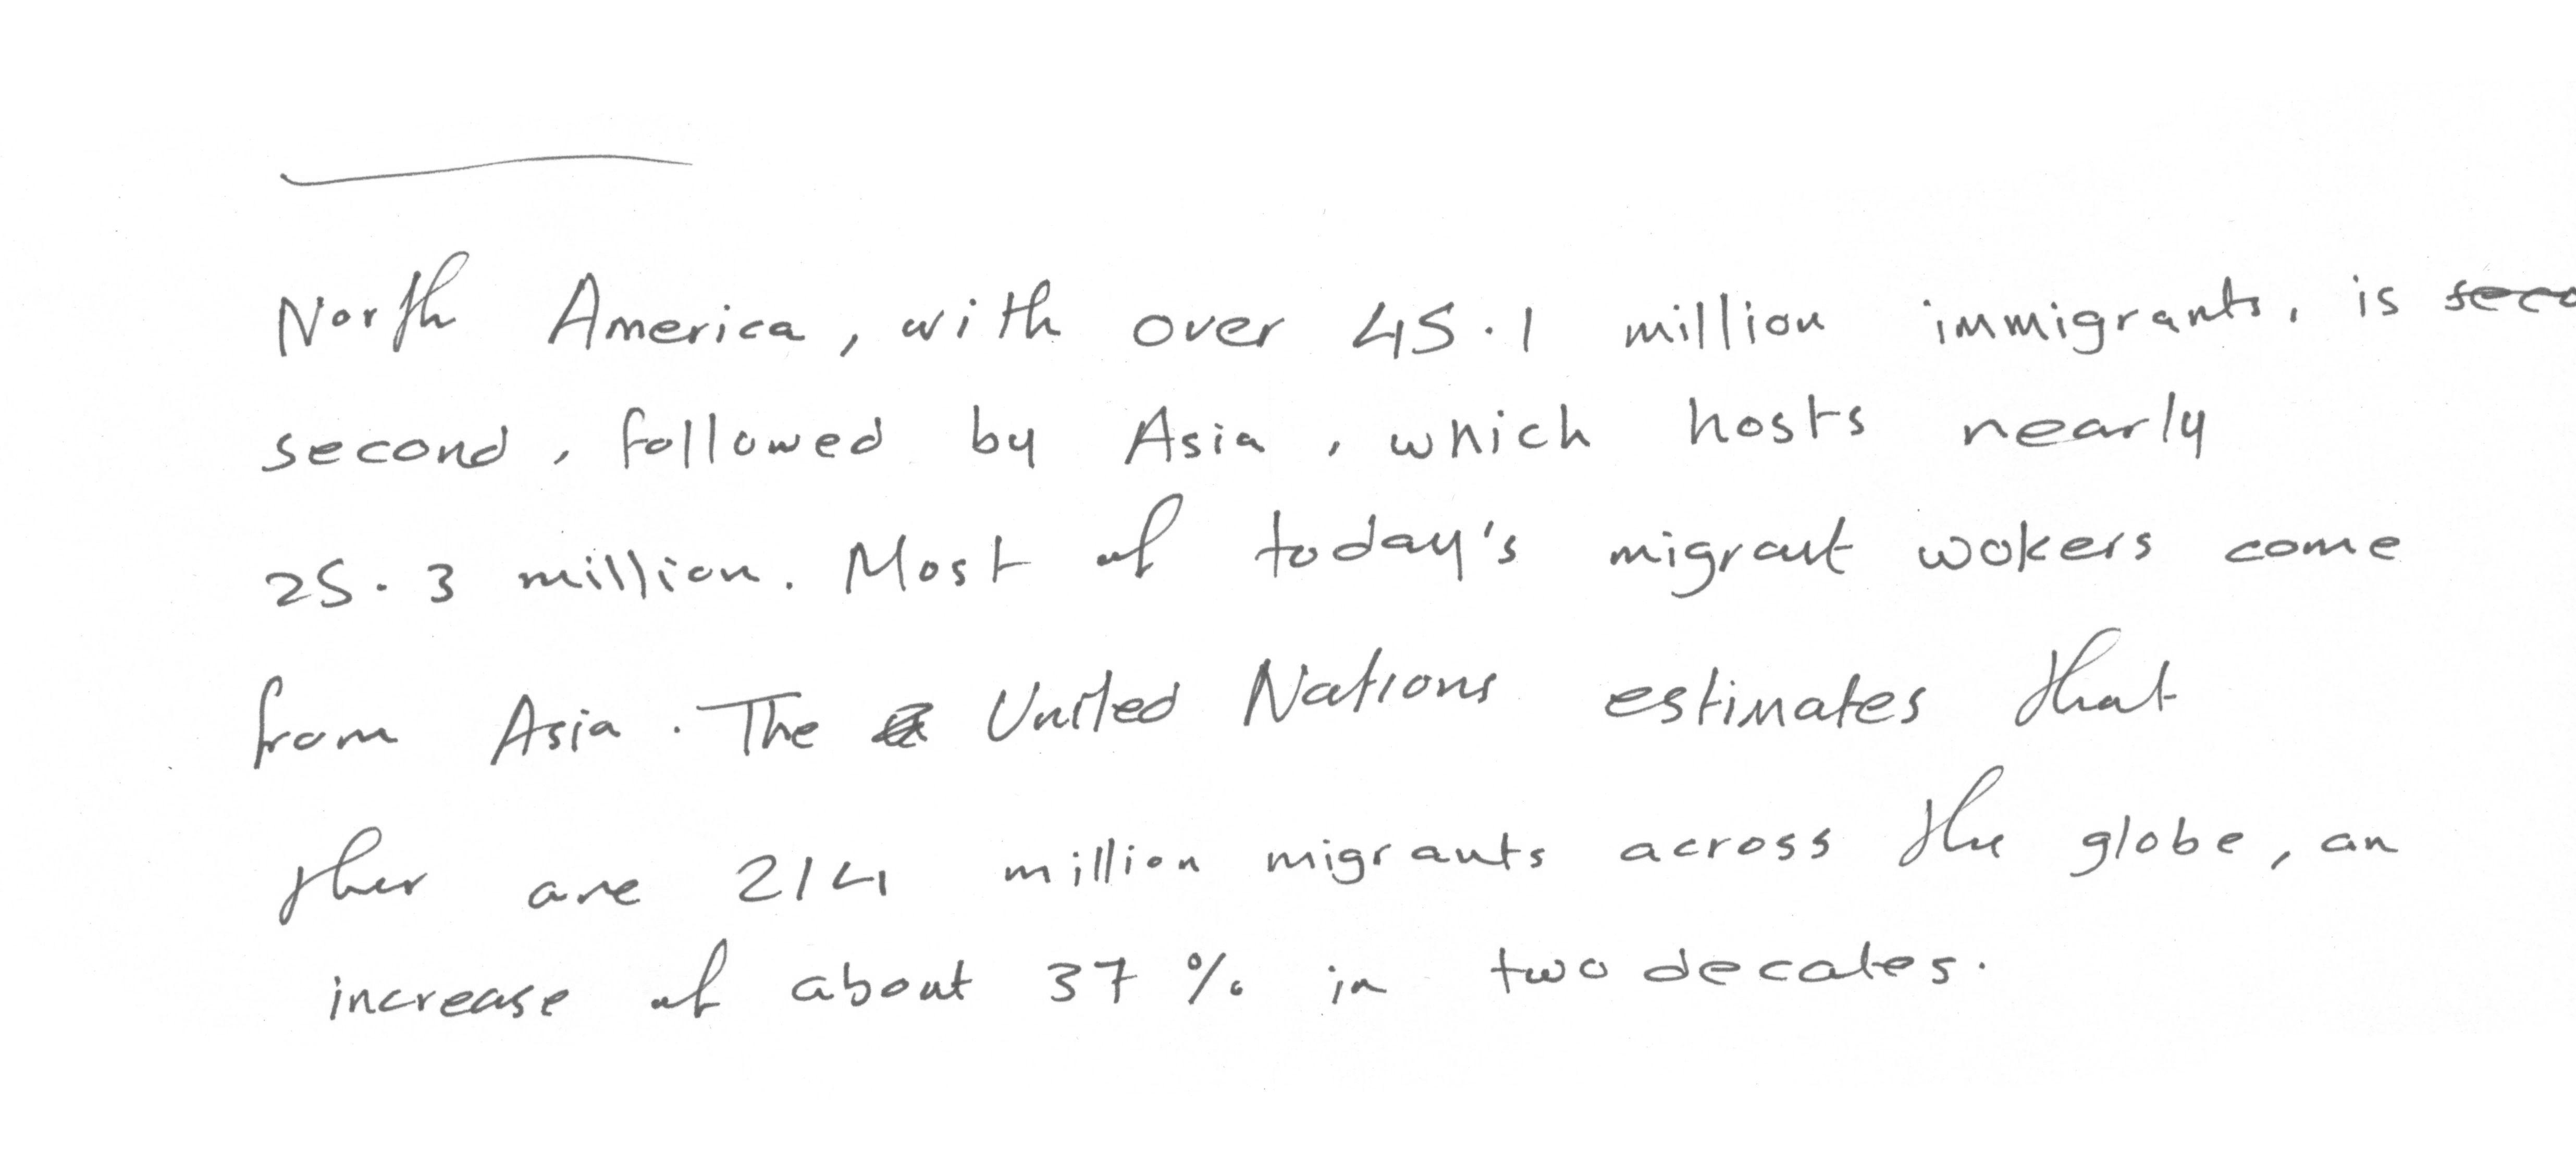 North America, with over 45.1 million immigrants, is
second, followed by Asia, which hosts nearly
25.3 million. Most of today's migrant wokers come
from Asia. The United Nations estimates that
ther are 214 million migrants across the globe, an
increase of about 37 % in two decates.